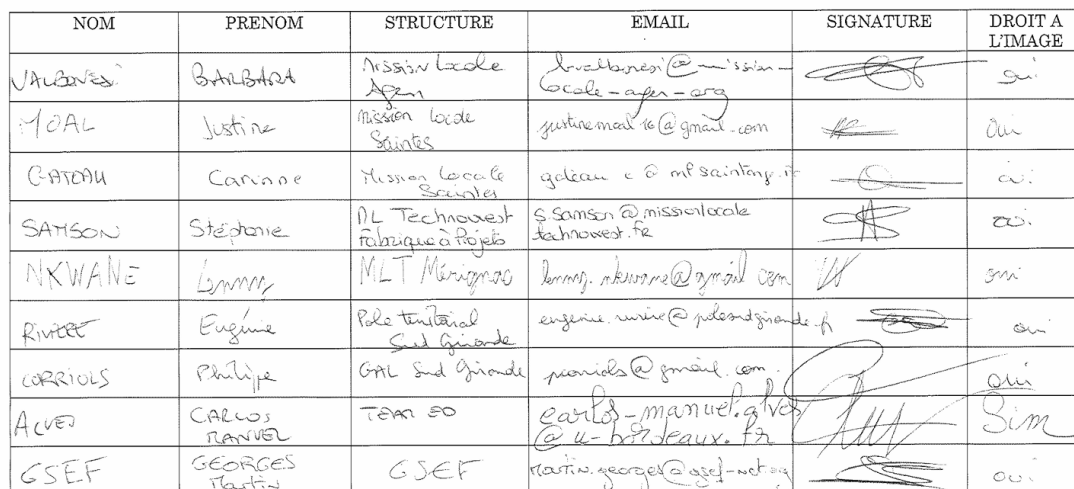 NOM PRENOM STRUCTURE EMAIL SIGNATURE DROIT A L'IMAGE
VALBONESI BARBARA Mission Locale Agen b.valbonesi@mission-locale-agen-org oui
MOAL Justine Mission locale Saintes justinemoal16@gmail.com oui
GATEAU Carinne Mission Locale Saintes oui
SAMSON Stéphanie ML Technowest Fabrique à Projets s.samson@missionlocale technowest.fr oui
NKWANE MLT Mérignac nkwane@gmail com oui
RIVIERE Eugénie Pole territorial Sud Gironde eugenie.riviere@polesudgironde.fr oui
CORRIOLS Philippe GAL Sud Gironde @gmail.com oui
ALVES CARLOS MANUEL carlos-manuel.alves @u-bordeaux.fr Sim
GSEF GEORGES Martin GSEF martin.georges@gsef-net.org oui